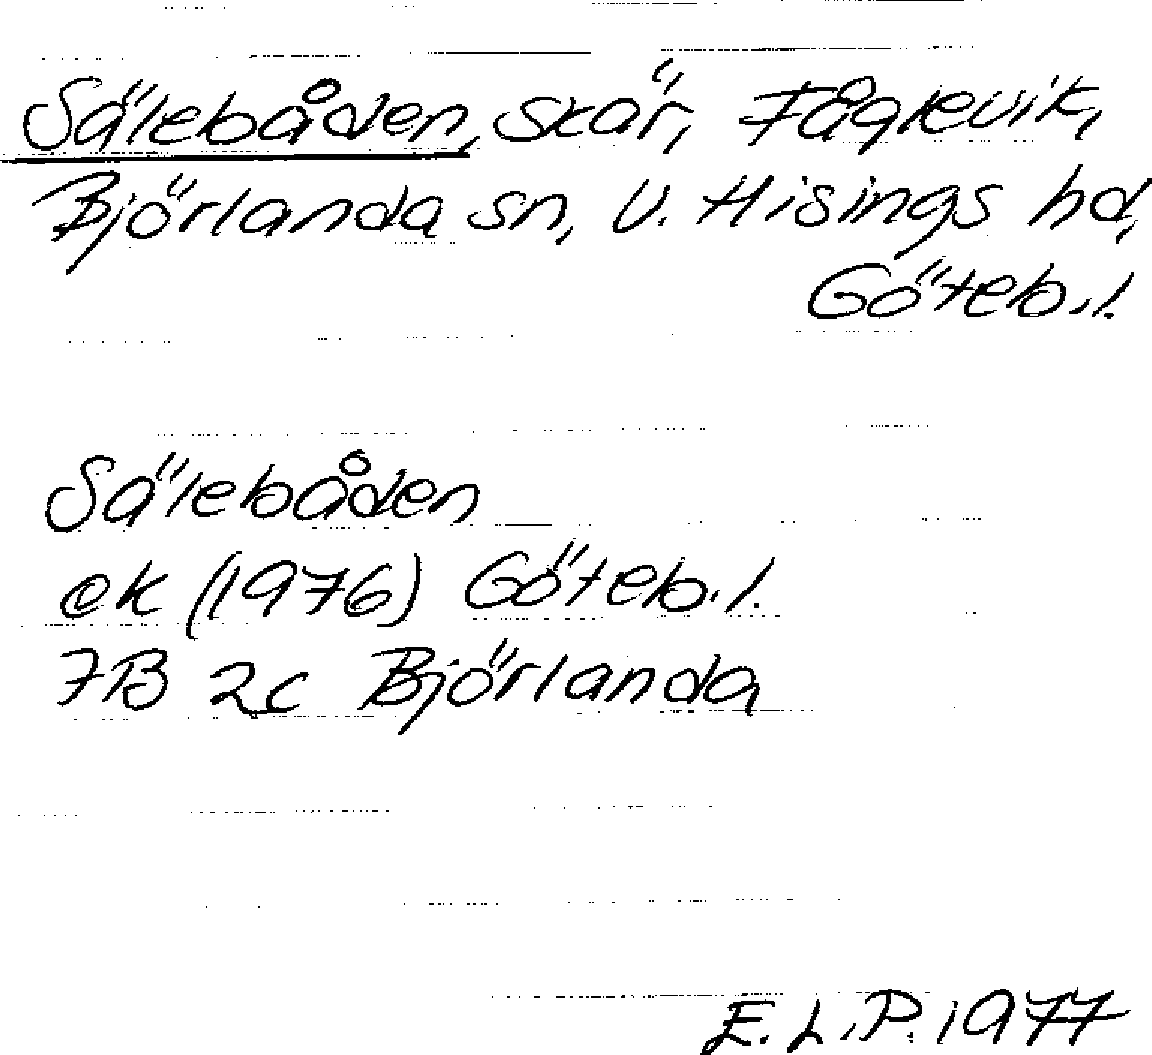 Sälebåden, skär, Fåglevik,
Björlanda sn, V. Hisings hd,
Göteb.l.
Sälebåden
ek (1976) Göteb.l.
7B 2c Björlanda
E.L.P. 1977